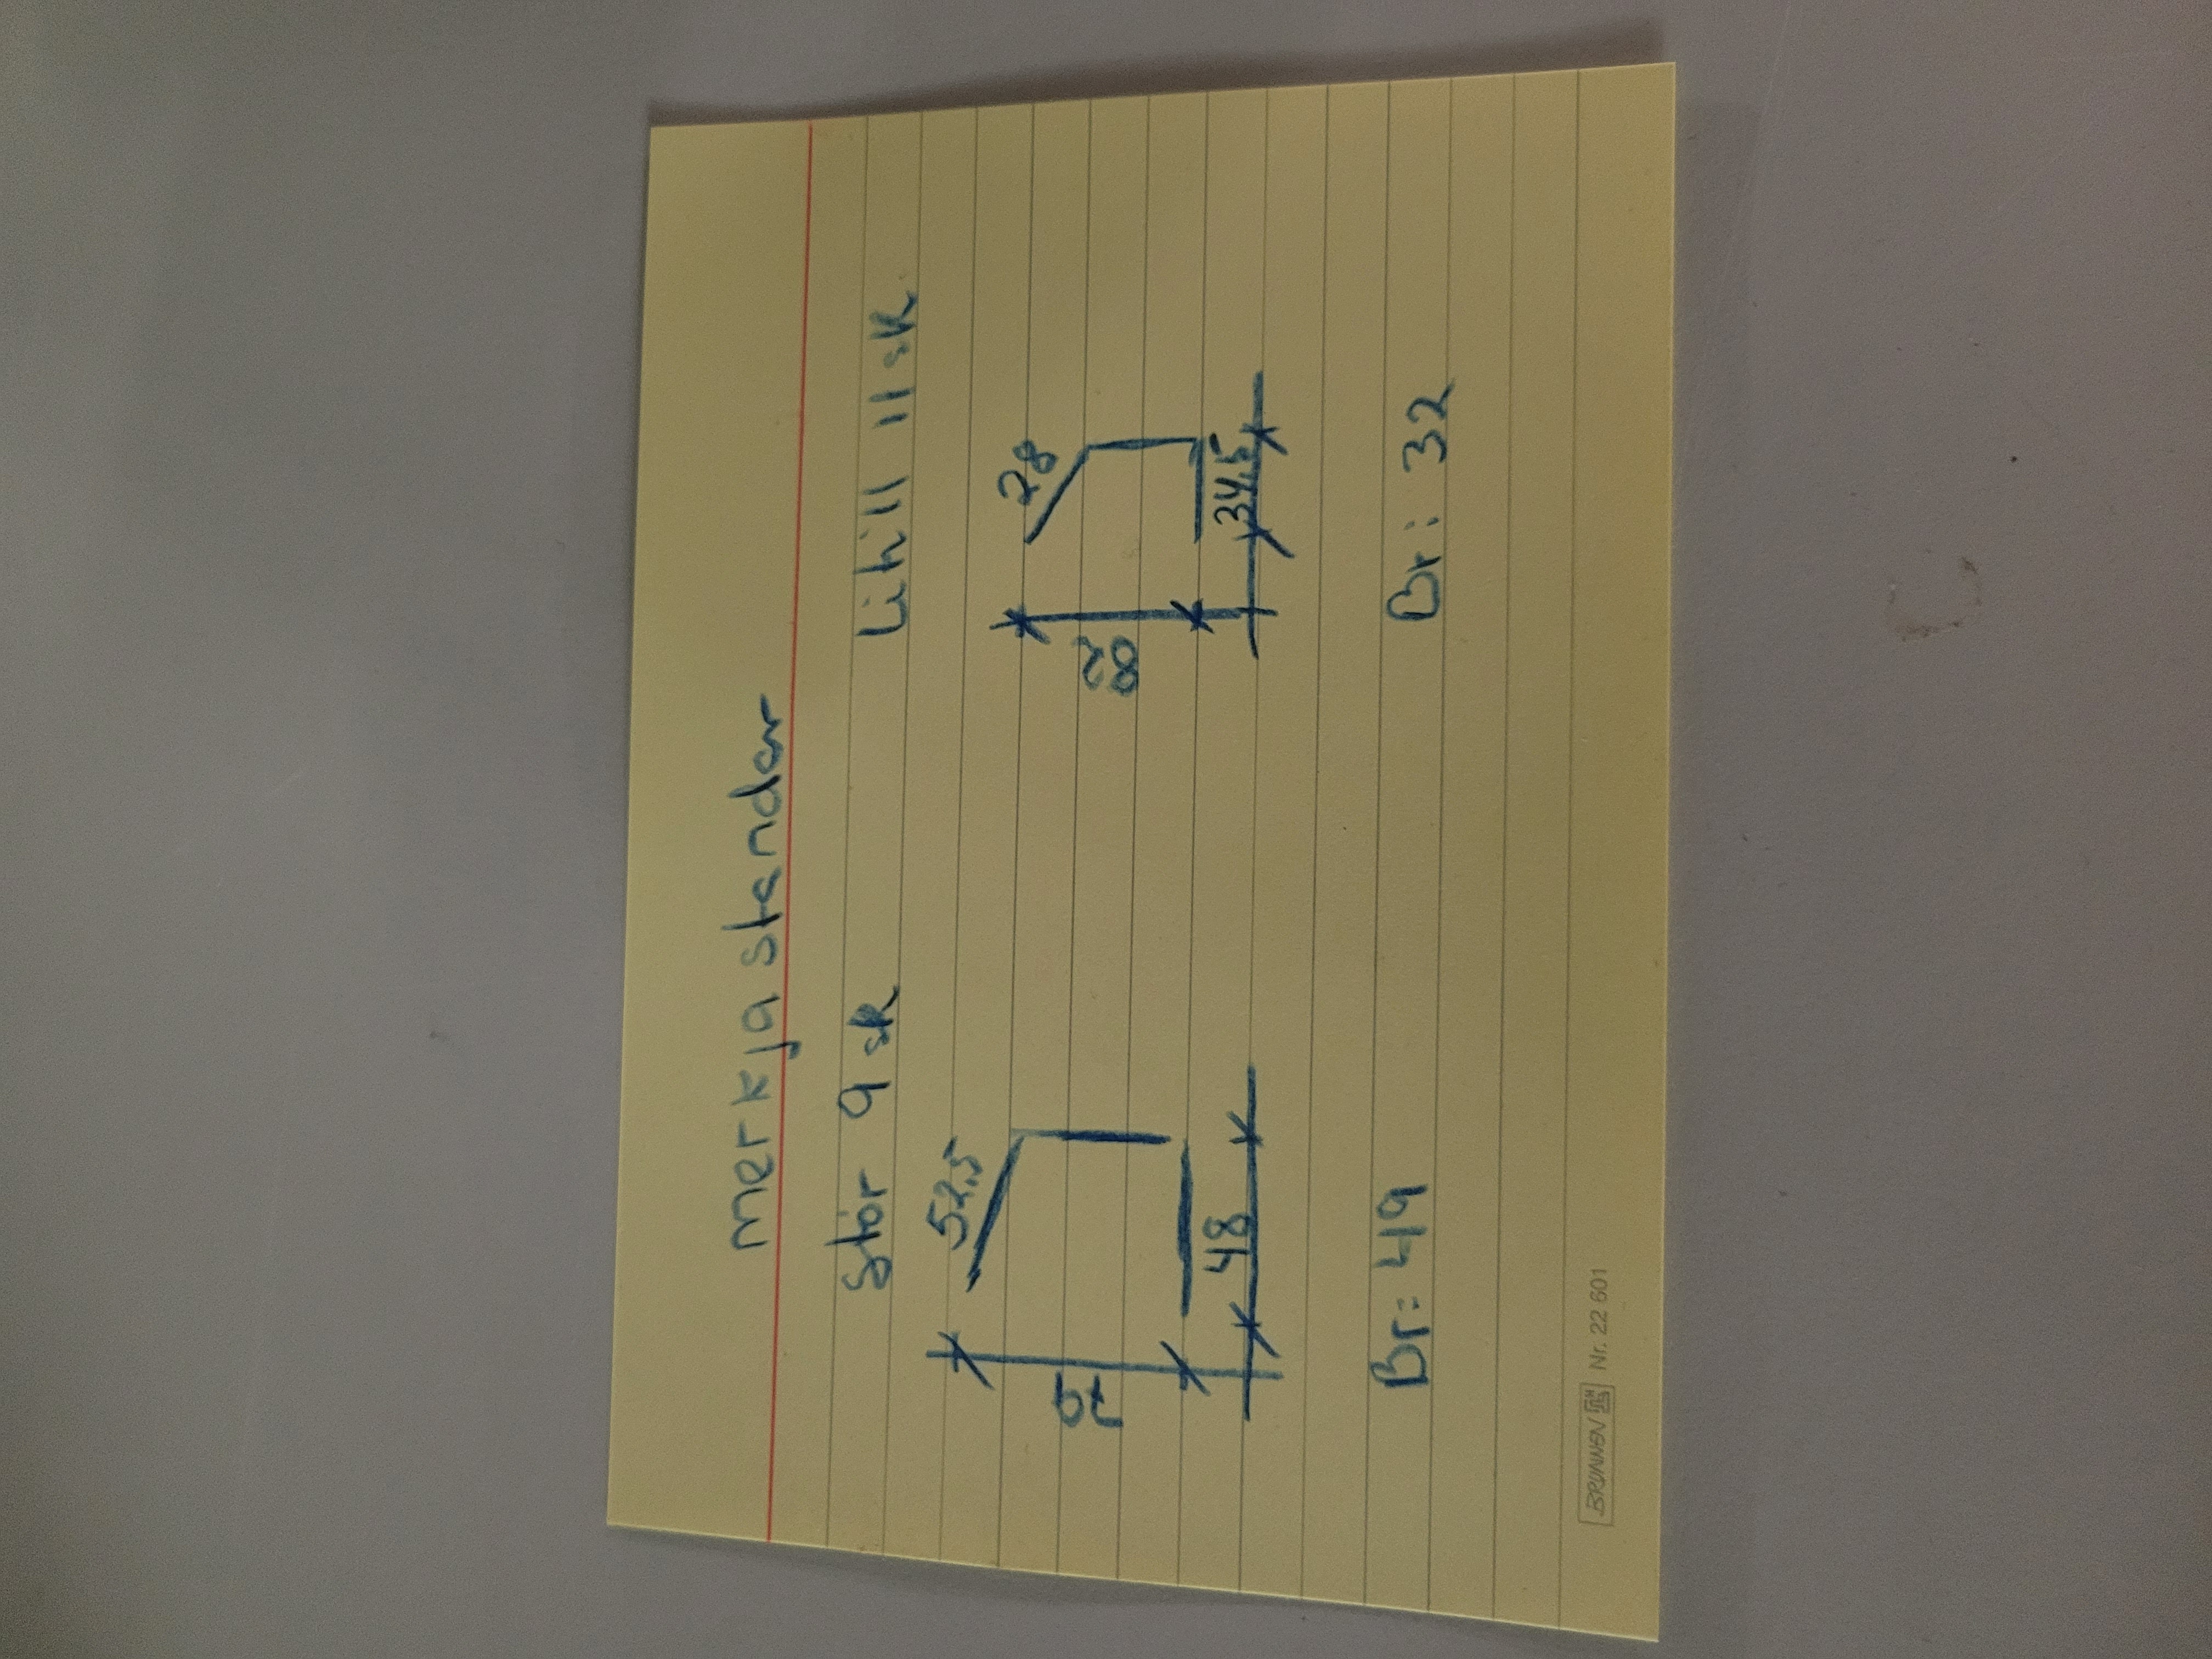 merkja standar
Stór 9 sk
Litill 11 sk
52,5
28
28
48
34,5
Br: 49
Br: 32
BRUNNEN Nr. 22 601